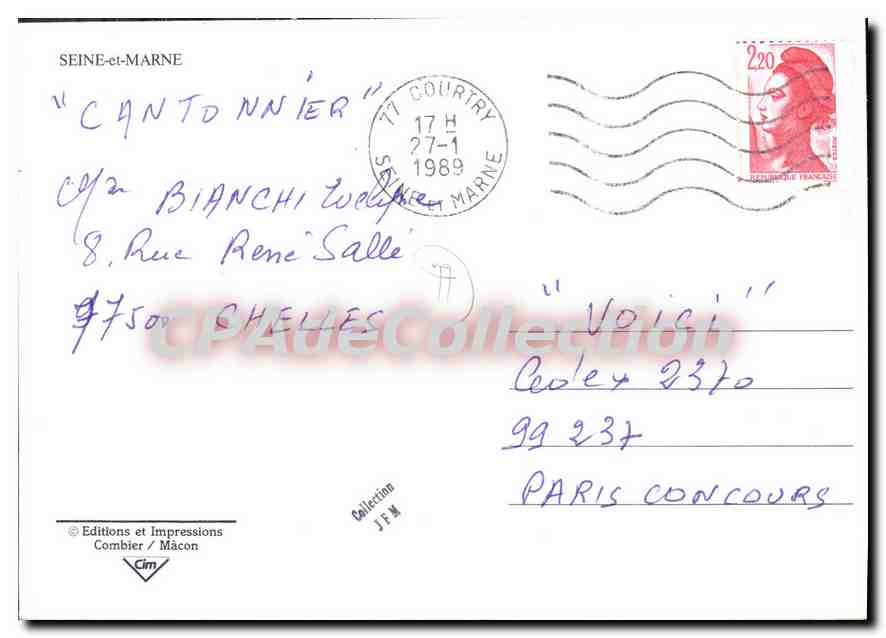 SEINE-et-MARNE
" CANTONNIER "
BIANCHI
8, Rue René Sallé
77500 CHELLES
77
77 COURTRY
17 H
27-1
1989
SEINE ET MARNE
2,20
REPUBLIQUE FRANCAISE
" VOICI "
Cedex 2370
99 237
PARIS CONCOURS
CPAdeCollection
Collection
JFM
© Editions et Impressions
Combier / Mâcon
Cim